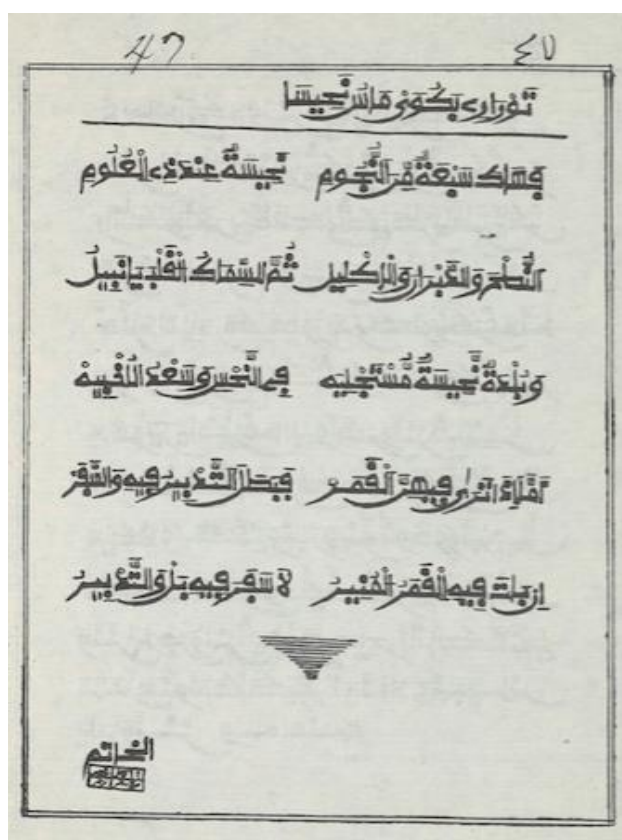 47 ٤٧
تَوْرَارِى بَكْوَىْ مَاسُ نَحِيسَا
فَهَاكَ سَبْعَةٌ مِّنَ النُّجُومِ نَحِيسَةٌ عِنْدَ ذِى الْعُلُومِ
النَّطْحُ وَالدَّبَرَانِ وَالْاِكْلِيلُ ثُمَّ السِّمَاكُ الْقَلْبُ يَا نَبِيلُ
وَبَلْدَةٌ نَّحِيسَةٌ مُّسْتَجْلِيَه فِى النَّحْسِ وَسَعْدُ الْاَخْبِيَهْ
فِيهِنَّ الْقَمَرْ فَبَطَلَ التَّدْبِيرُ فِيهِ وَالسَّفَرْ
اِنْ بَاتَ فِيهِ الْقَمَرُ الْمُنِيرُ لَا سَفَرَ فِيهِ بَلْ وَالتَّدْبِيرُ
الخاتم